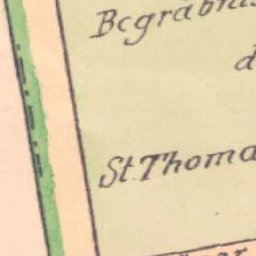 Begräbnis
d
St. Thoma